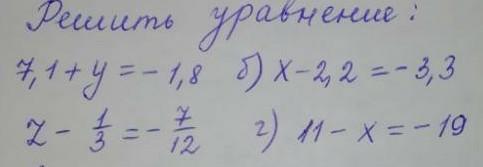 Решить уравнение:
7,1 + y = - 1,8 б) x - 2,2 = - 3,3
z - 1/3 = - 7/12 г) 11 - x = - 19